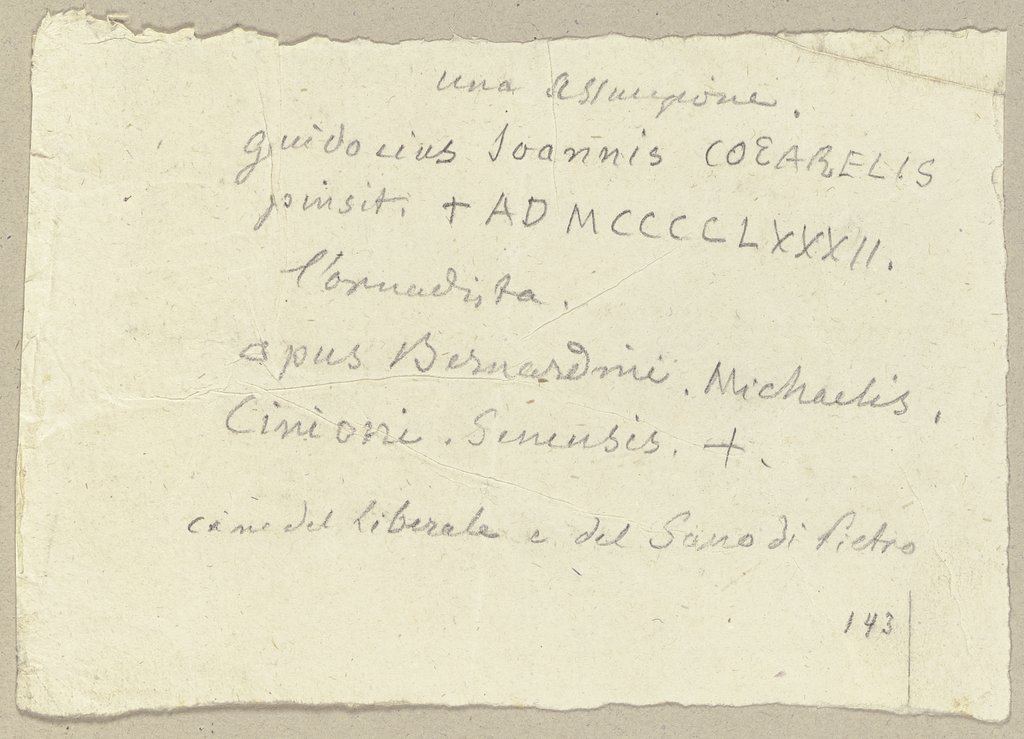 una assunpione.
guidocius Ioannis COEARELIS
pinsit. + AD MCCCCLXXXII.
l'ornadista.
opus Bernardini. Michaelis.
Cinioni. Senensis. +.
del Liberale e del Sano di Pietro
143